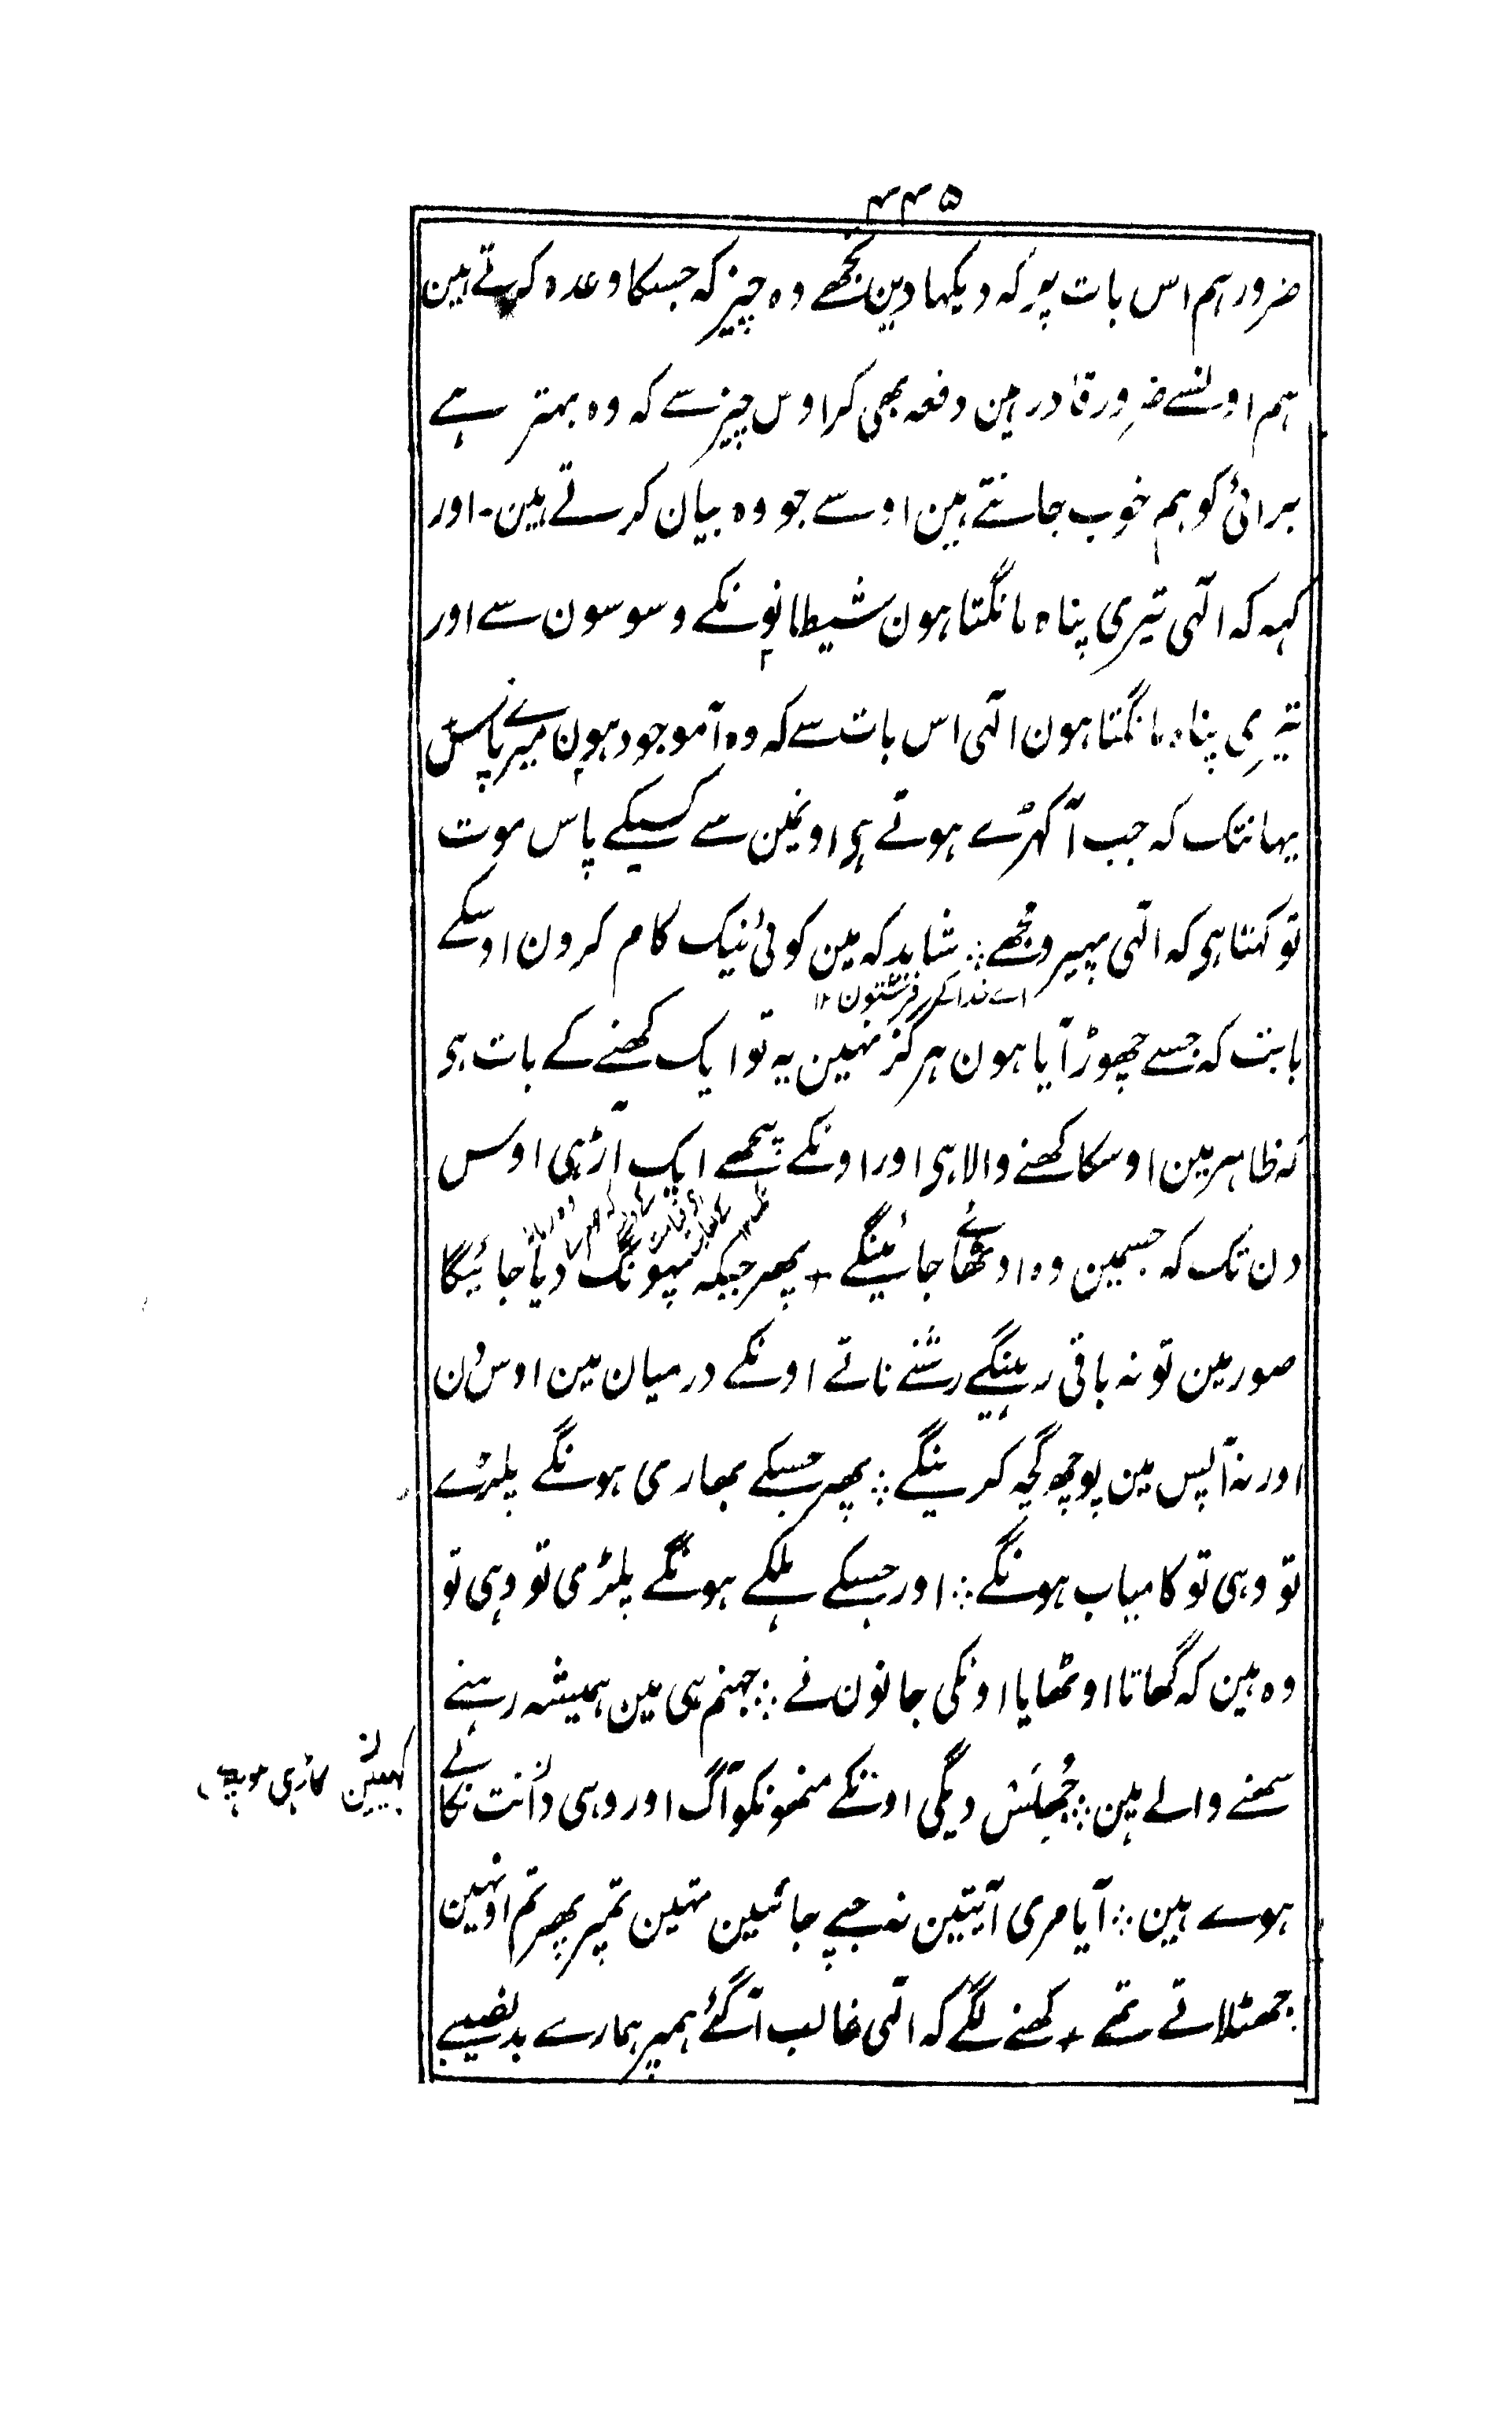 ۴۴۵
ضرور ہم اس بات پر کہ دیکہا دین تجھے وہ چیز کہ جسکا وعدہ کرتے ہین
ہم اونسے ضرور قادر ہین دفعہ بھی کر اوس چیز سے کہ وہ بہتر ہے
برائی کو ہم خوب جانتے ہین اوسے جو وہ بیان کرتے ہین۔ اور
کہہ کہ الٰہی تیری پناہ مانگتا ہون شیطانونکے وسوسون سے اور
تیری پناہ مانگتا ہون الٰہی اس بات سے کہ وہ آموجود ہون میرے پاس
یہانتک کہ جب آ کہڑے ہوتے ہی اونمین سے کسیکے پاس موت
تو کہتا ہی کہ الٰہی پہیرو مجھے ∴ شاید کہ مین کوئی نیک کام کرون اوسکے
اے خدا کے فرشتون ۱۲
بابت کہ جسے چھوڑ آیا ہون ہرگز نہین یہ تو ایک کھنے کے بات ہی
کہ ظاہر مین اوسکا کھنے والا ہی اور اونکے پیچھے ایک آڑ ہی اوس
دن تک کہ جسمین وہ اوٹھائے جائینگے + پھر جبکہ پہونک دیا جائیگا
صور مین تو نہ باقی رہینگے رشتے ناتے اونکے درمیان مین اوس دن
اور نہ آپس مین پوچھ گچھ کرینگے ∴ پھر جسکے بھاری ہونگے پلڑے
تو وہی تو کامیاب ہونگے ∴ اور جسکے ہلکے ہونگے پلڑی تو وہی تو
وہ ہین کہ گھاتا اوٹھایا اونکی جانون نے ∴ جہنم ہی مین ہمیشہ رہنے
سہنے والے ہین ∴ جُھلَس دیگی اونکے منھونکو آگ اور وہی دانت نکالے
ہوے ہین ∴ آیا مری آیتین نہ جپے جائین تہین تمپر پھر تم اونہین
جھٹلاتے تھے + کھنے لگے کہ الٰہی غالب آگئے ہمپر ہمارے بدنصیبے